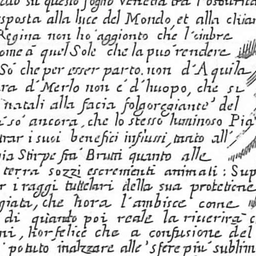 su questo foglio Venetia tra l'oscurità
sposta alla luce del Mondo, et alla chiar
Regina non hò aggionto che l'imbre
ome à quel Sole che la può rendere
Sò che per esser parto, non d'Aquila
ra d'Merlo non è d'huopo, che si
natali alla facia folgoregiante del
sò ancora, che lo stesso luminoso Pia
trar i suoi benefici influssi, tanto all'
ia Stirpe frà Bruti quanto alle
terra sozzi escrementi animati: Sup
r i raggi tuttelari della sua protetione
giata, che hora l'ambisce come
di quanto poi reale la riverirà c
ni, hor felice che a confusione del
potuto inalzare alle sfere più sublim